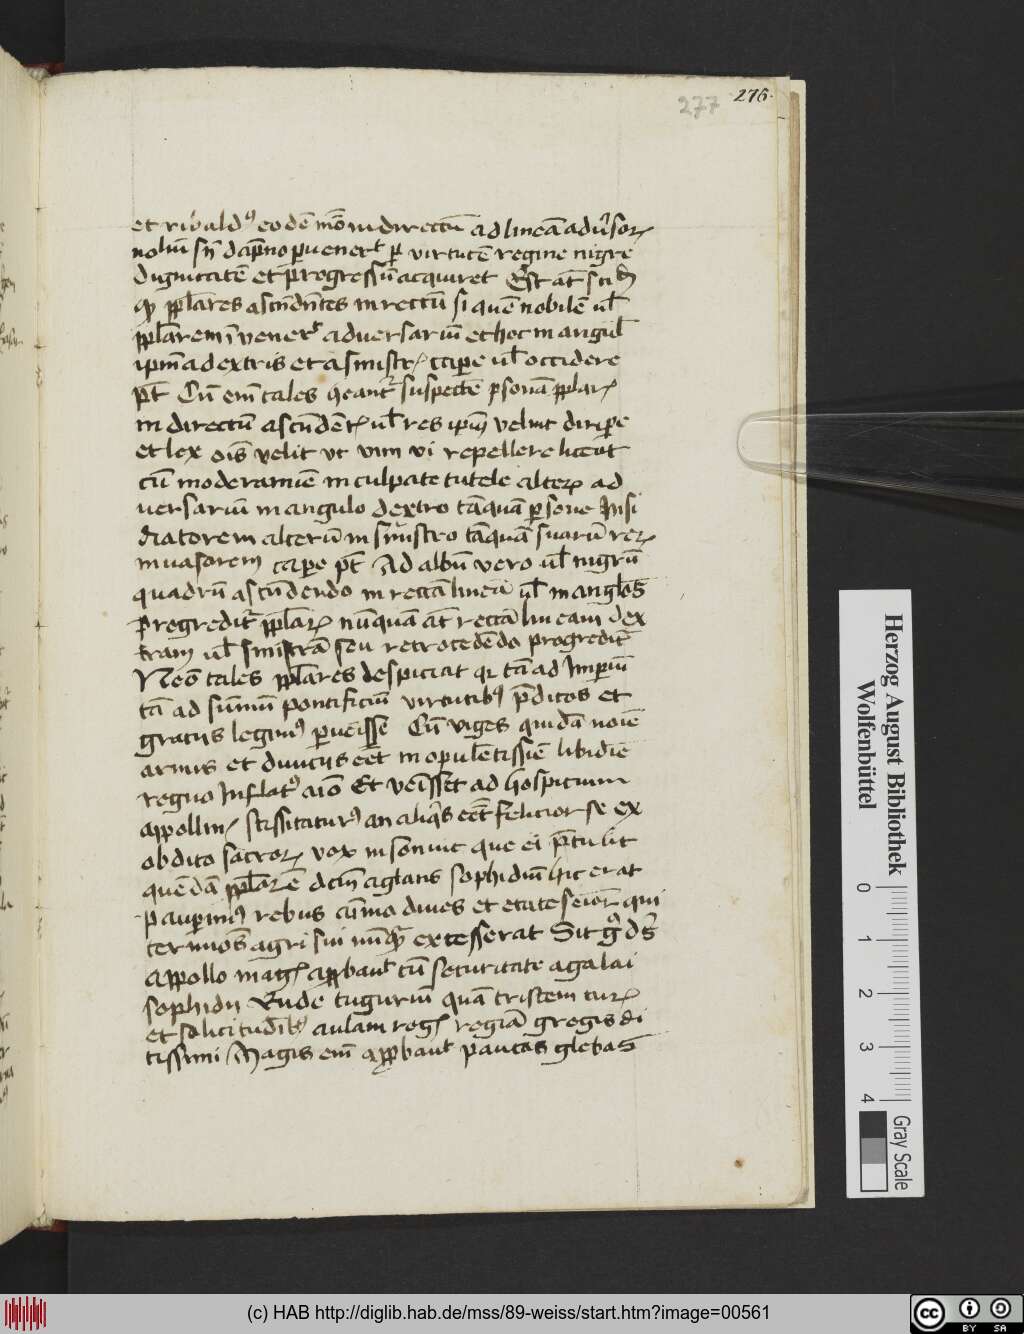 277 276
et ribaldꝰ eodē mō in directū ad lineā adūsoꝝ
nobiliū sn̄ dāpno puenerͭ ꝑ virtutē regine nigre
dignitatē et progressū acquiret Est at̄ sciē
qͥ pplares ascn̄dn̄tes in rectū si quē nobilē ul̄
pplarem īvenerͭ adversariū et hoc in angul̄
ipm̄ a dextris et a sinistrꝭ capere ul̄ occidere
pt̄ Cū em̄ tales hēant᷑ suspectē psonā pplarꝭ
in directū ascn̄dētꝭ ul̄ res ipiꝰ velint diripe
et lex oīs velit ut vim vi repellere liceat
cū moderamīe inculpate tutele alteꝝ ad
versariū in angulo dextro tāquā ꝑsone Insi
diatorem alterū in sinistro tāquā suarū reꝝ
invasorem cape pt̄ Ad albū vero ul̄ nigrū
quadrū ascn̄dendo in rectā lineā ul̄ in anglos
progredit᷑ pplarꝭ nūquā at̄ rectā lineam dex
tram ul̄ sinistrā seu retrocedēdo progredit᷑
Neō tales pplares despiciat qꝛ tā ad Imperiū
tā ad sūmū pontificiū virtutibꝰ p̄ditos et
gratijs legimꝰ puenisse Cū viges quidā noīe
armis et divicijs eēt in opulētissīe libidīe
regno Inflatꝰ aīo Et venīsset ad hospicium
appollinꝭ scissitaturꝰ an aliqͥs eēt felicior se ex
obdito sacroꝝ vox insonuit que ei p̄tulit
quēdā pplarē dcm̄ aglaus sophidiū hic erat
paupimꝰ rebus aīmo dives et etate seīor qui
termīos agri sui nūqͣ excesserat Sit gͦ ds̄
Appollo magꝭ appbauͭ cū securitate agalai
sophidij Rude tuguriū quā tristem curꝭ
et solicitudībꝰ aulam regꝭ regiā gregis di
tissimi Magis em̄ appbauͭ paucas glebas
Herzog August Bibliothek
Wolfenbüttel
0 1 2 3 4
Gray Scale
(c) HAB http://diglib.hab.de/mss/89-weiss/start.htm?image=00561
cc BY SA